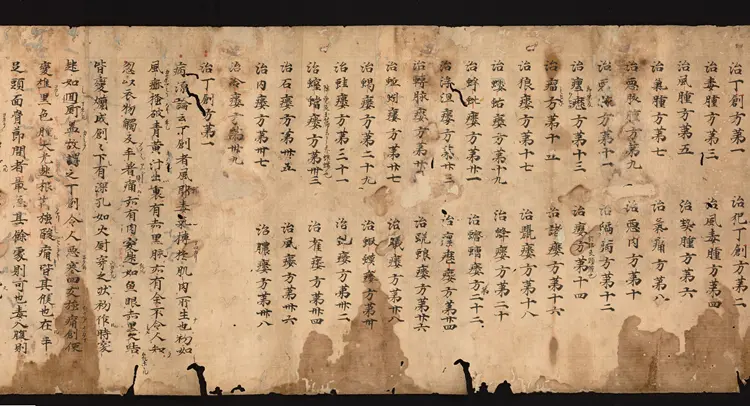 治丁創方第一　治犯丁創方第二
治毒腫方第三　治風毒腫方第四
治風腫方第五　治熱腫方第六
治氣腫方第七　治氣痛方第八
治惡脉腫方第九　治惡肉方第十
治惡方第十一　治病方第十二
治瘰癧方第十三　治瘻方第十四
治瘤方第十五　治諸瘻方第十六
治狼瘻方第十七　治鼠瘻方第十八
治螻蛄瘻方第十九　治蜂瘻方第二十
治蚍蜉瘻方第廿一　治蠐螬瘻方第二十二
治浮疽瘻方第廿三　治瘰癧瘻方第廿四
治轉脉瘻方第廿五　治蜣蜋瘻方第廿六
治蚯蚓瘻方第廿七　治蟻瘻方第廿八
治蝎瘻方第二十九　治蝦蟆瘻方第卅
治蛙瘻方第三十一　治虵瘻方第卅二
治螲蟷瘻方第卅三　治雀瘻方第卅四
治石瘻方第卅五　治風瘻方第卅六
治内瘻方第卅七　治膿瘻方第卅八
治冷瘻方第卅九
治丁創方第一
病源論云丁創者風邪毒氣搏於肌肉所生也初如
風𤺋搔破青黄汁出裏有赤黑脉亦有全不令人知
忽以衣物觸及手者痛亦有肉突起如魚眼赤黑久結
皆變爛成創創下有深孔如火針穿之狀初作時突
起如丁蓋故謂之丁創令人惡寒四支強痛創便
變焦黑色腫大光起根強酸痛皆其候也在手
足頭面骨節間者最急其餘處則可也毒入腹則